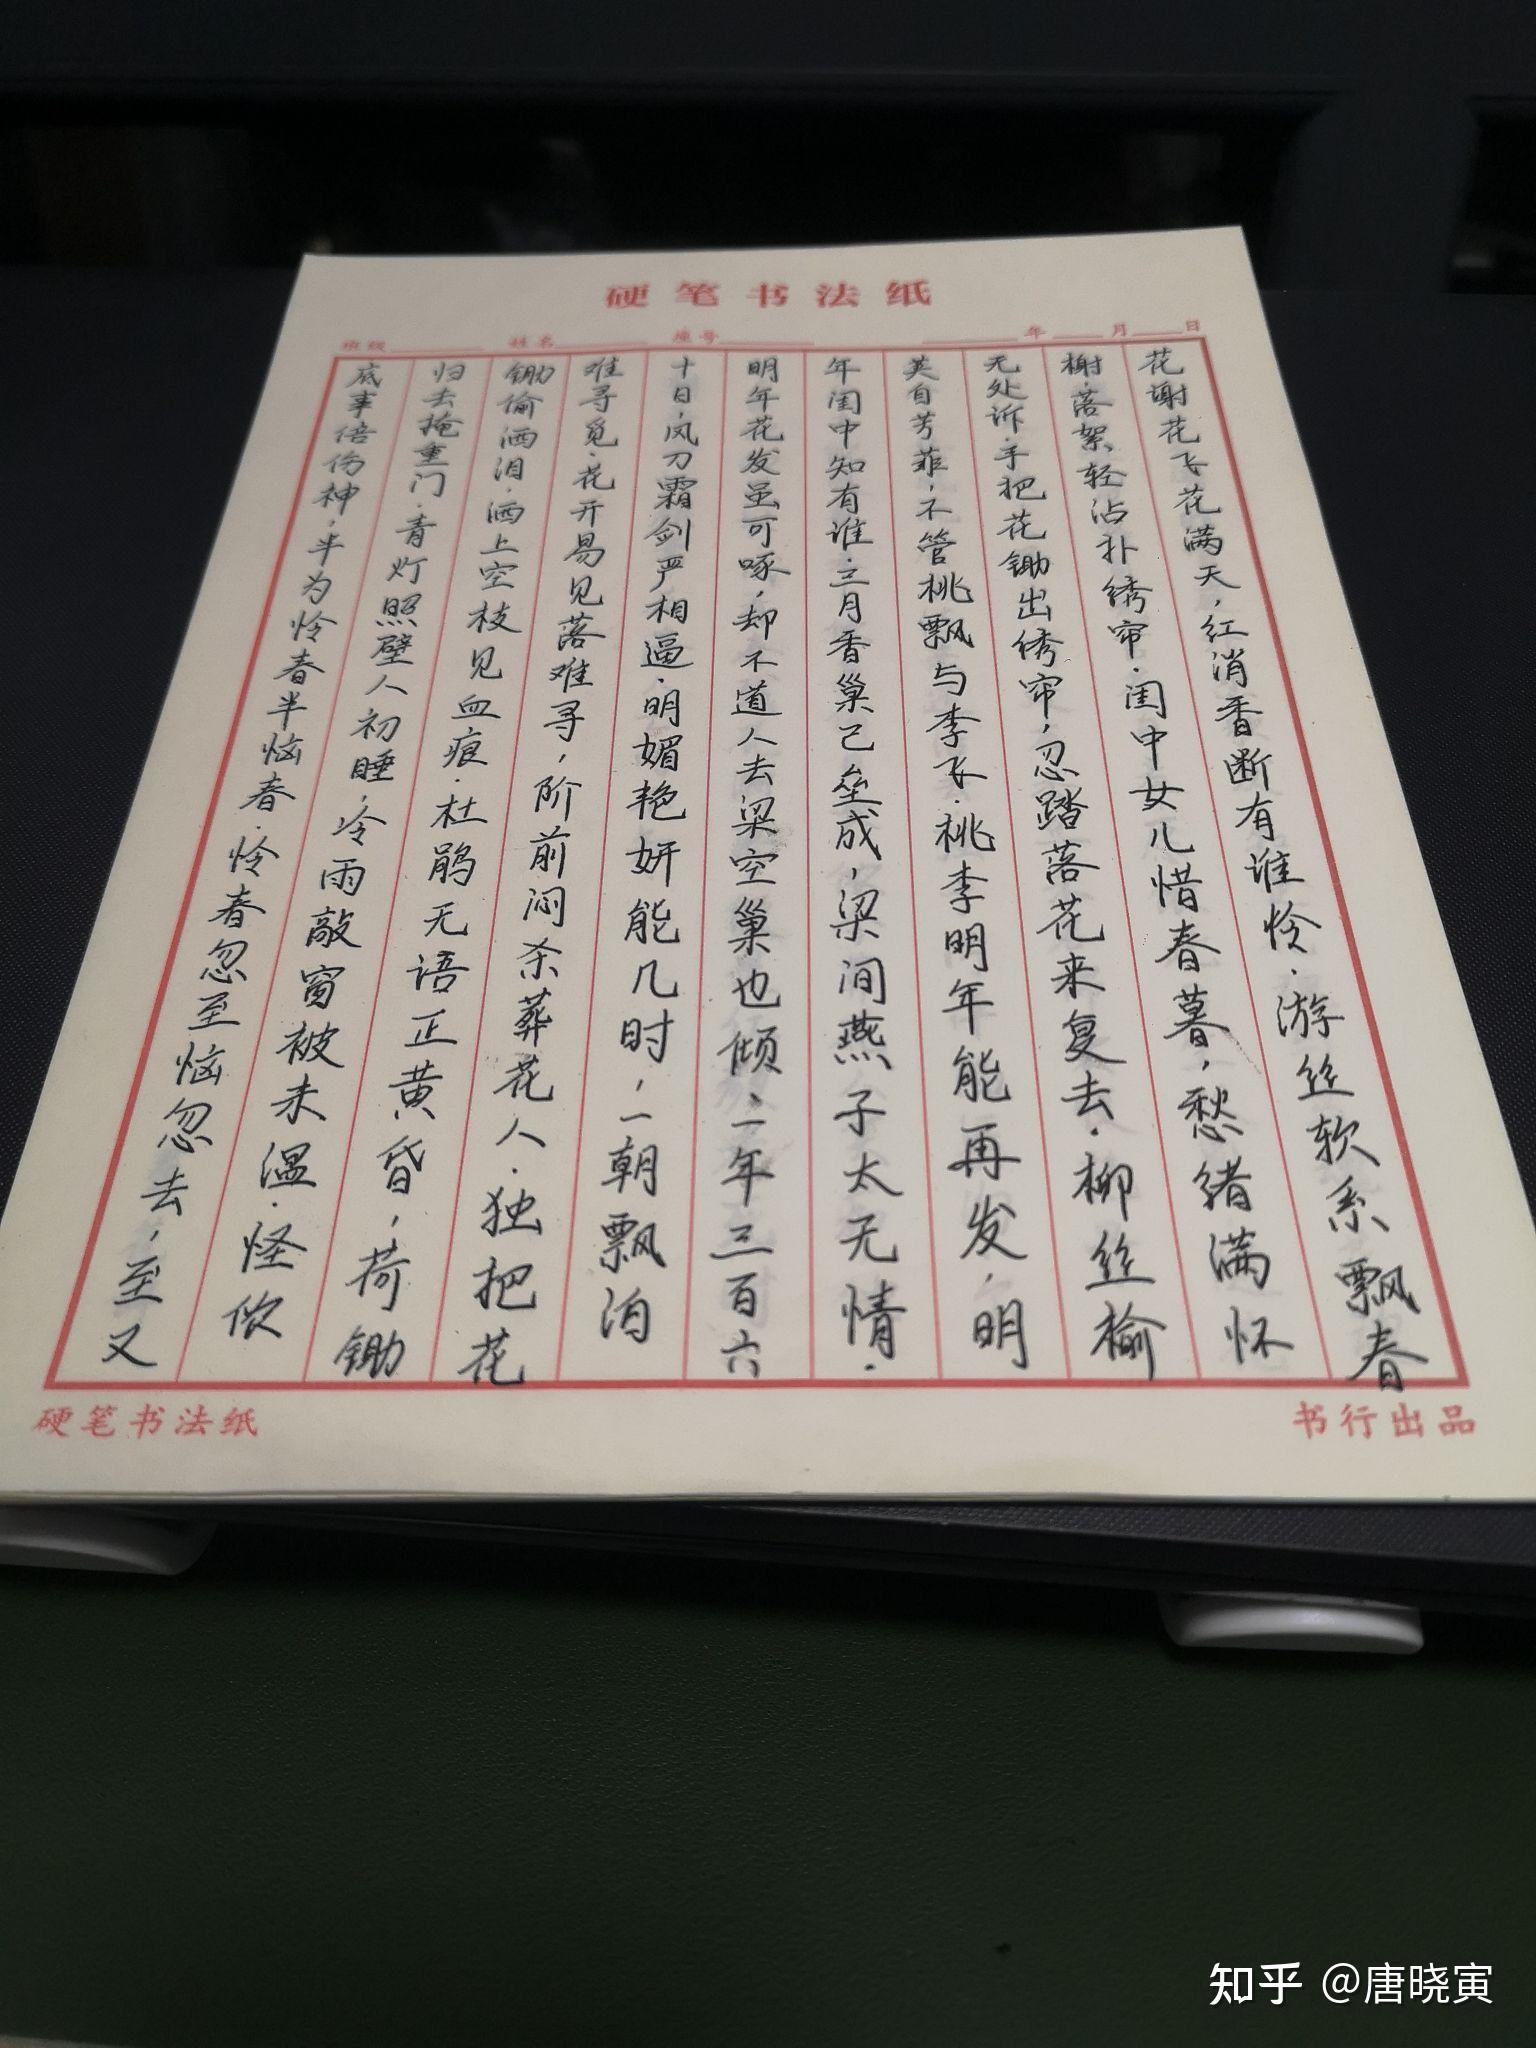 硬笔书法纸
班级 姓名 座号 年 月 日
花谢花飞花满天,红消香断有谁怜.游丝软系飘春
榭.落絮轻沾扑绣帘.闺中女儿惜春暮,愁绪满怀
无处诉.手把花锄出绣帘,忍踏落花来复去.柳丝榆
荚自芳菲,不管桃飘与李飞.桃李明年能再发,明
年闺中知有谁.三月香巢已垒成,梁间燕子太无情.
明年花发虽可啄,却不道人去梁空巢也倾.一年三百六
十日,风刀霜剑严相逼.明媚艳妍能几时,一朝飘泊
难寻觅.花开易见落难寻,阶前闷杀葬花人.独把花
锄偷洒泪.洒上空枝见血痕.杜鹃无语正黄昏,荷锄
归去掩重门.青灯照壁人初睡,冷雨敲窗被未温.怪侬
底事倍伤神,半为怜春半恼春.怜春忽至恼忽去,至又
硬笔书法纸
书行出品
知乎 @唐晓寅